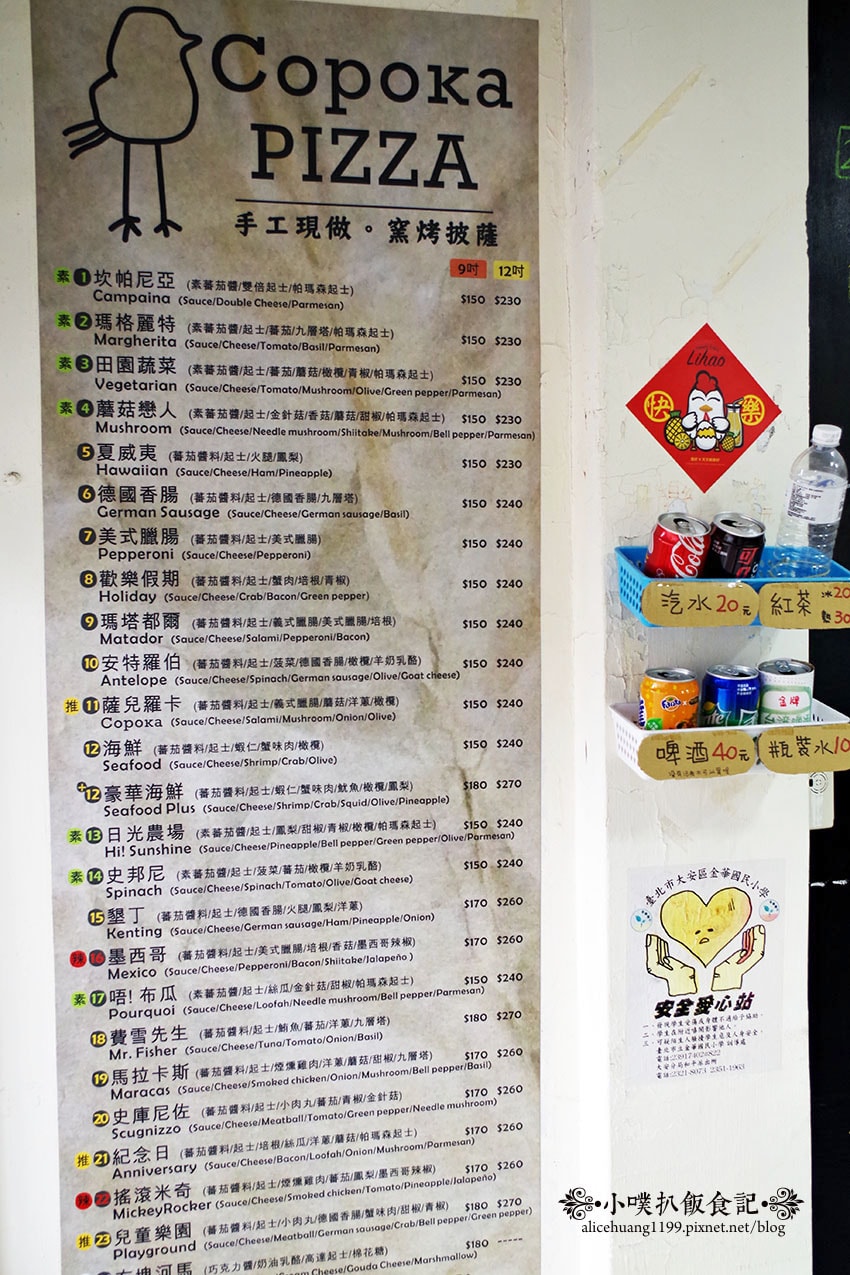 Copoka
PIZZA
手工現做。窯烤披薩
9吋 12吋
素 1 坎帕尼亞 (素蕃茄醬/雙倍起士/帕瑪森起士)
Campaina (Sauce/Double Cheese/Parmesan) $150 $230
素 2 瑪格麗特 (素蕃茄醬/起士/蕃茄/九層塔/帕瑪森起士)
Margherita (Sauce/Cheese/Tomato/Basil/Parmesan) $150 $230
素 3 田園蔬菜 (素蕃茄醬/起士/蕃茄/蘑菇/橄欖/青椒/帕瑪森起士)
Vegetarian (Sauce/Cheese/Tomato/Mushroom/Olive/Green pepper/Parmesan) $150 $230
素 4 蘑菇戀人 (素蕃茄醬/起士/金針菇/香菇/蘑菇/甜椒/帕瑪森起士) $150 $230
Mushroom (Sauce/Cheese/Needle mushroom/Shiitake/Mushroom/Bell pepper/Parmesan)
5 夏威夷 (蕃茄醬料/起士/火腿/鳳梨)
Hawaiian (Sauce/Cheese/Ham/Pineapple) $150 $230
6 德國香腸 (蕃茄醬料/起士/德國香腸/九層塔)
German Sausage (Sauce/Cheese/German sausage/Basil) $150 $240
7 美式臘腸 (蕃茄醬料/起士/美式臘腸)
Pepperoni (Sauce/Cheese/Pepperoni) $150 $240
8 歡樂假期 (蕃茄醬料/起士/蟹肉/培根/青椒)
Holiday (Sauce/Cheese/Crab/Bacon/Green pepper) $150 $240
9 瑪塔都爾 (蕃茄醬料/起士/義式臘腸/美式臘腸/培根)
Matador (Sauce/Cheese/Salami/Pepperoni/Bacon) $150 $240
10 安特羅伯 (蕃茄醬料/起士/菠菜/德國香腸/橄欖/羊奶乳酪) $150 $240
Antelope (Sauce/Cheese/Spinach/German Sausage/Olive/Goat cheese)
推 11 薩兒羅卡 (蕃茄醬料/起士/義式臘腸/蘑菇/洋蔥/橄欖) $150 $240
Copoka (Sauce/Cheese/Salami/Mushroom/Onion/Olive)
12 海鮮 (蕃茄醬料/起士/蝦仁/蟹味肉/橄欖) $150 $240
Seafood (Sauce/Cheese/Shrimp/Crab/Olive)
+12 豪華海鮮 (蕃茄醬料/起士/蝦仁/蟹味肉/魷魚/橄欖/鳳梨) $180 $270
Seafood Plus (Sauce/Cheese/Shrimp/Crab/Squid/Olive/Pineapple)
素 13 日光農場 (素蕃茄醬/起士/鳳梨/甜椒/青椒/橄欖/帕瑪森起士) $150 $240
Hi! Sunshine (Sauce/Cheese/Pineapple/Bell pepper/Green pepper/Olive/Parmesan)
素 14 史邦尼 (素蕃茄醬/起士/菠菜/蕃茄/橄欖/羊奶乳酪) $150 $240
Spinach (Sauce/Cheese/Spinach/Tomato/Olive/Goat cheese)
15 墾丁 (蕃茄醬料/起士/德國香腸/火腿/鳳梨/洋蔥) $170 $260
Kenting (Sauce/Cheese/German sausage/Ham/Pineapple/Onion)
辣 16 墨西哥 (蕃茄醬料/起士/美式臘腸/培根/香菇/墨西哥辣椒) $170 $260
Mexico (Sauce/Cheese/Pepperoni/Bacon/Shiitake/Jalapeño)
素 17 唔! 布瓜 (素蕃茄醬/起士/絲瓜/金針菇/甜椒/帕瑪森起士) $150 $240
Pourquoi (Sauce/Cheese/Loofah/Needle mushroom/Bell pepper/Parmesan)
18 費雪先生 (蕃茄醬料/起士/鮪魚/蕃茄/洋蔥/九層塔) $180 $270
Mr. Fisher (Sauce/Cheese/Tuna/Tomato/Onion/Basil)
19 馬拉卡斯 (蕃茄醬料/起士/煙燻雞肉/洋蔥/蘑菇/甜椒/九層塔) $170 $260
Maracas (Sauce/Cheese/Smoked chicken/Onion/Mushroom/Bell pepper/Basil)
20 史庫尼佐 (蕃茄醬料/起士/小肉丸/蕃茄/青椒/金針菇) $170 $260
Scugnizzo (Sauce/Cheese/Meatball/Tomato/Green pepper/Needle mushroom)
推 21 紀念日 (蕃茄醬料/起士/培根/絲瓜/洋蔥/蘑菇/帕瑪森起士) $170 $260
Anniversary (Sauce/Cheese/Bacon/Loofah/Onion/Mushroom/Parmesan)
辣 22 搖滾米奇 (蕃茄醬料/起士/煙燻雞肉/蕃茄/鳳梨/墨西哥辣椒) $170 $260
MickeyRocker (Sauce/Cheese/Smoked chicken/Tomato/Pineapple/Jalapeño)
推 23 兒童樂園 (蕃茄醬料/起士/小肉丸/德國香腸/蟹味肉/甜椒/青椒) $180 $270
Playground (Sauce/Cheese/Meatball/German sausage/Crab/Bell pepper/Green pepper)
河馬 (巧克力醬/奶油乳酪/高達起士/棉花糖) $180 -----
Cream Cheese/Gouda Cheese/Marshmallow)
Lihao
快樂
汽水20元
紅茶 冰20
熱30
啤酒40元
瓶裝水10
臺北市大安區金華國民小學
安全愛心站
大安分局和平派出所
電話:2321-8073 2351-1963
小噗扒飯食記
alicehuang1199.pixnet.net/blog